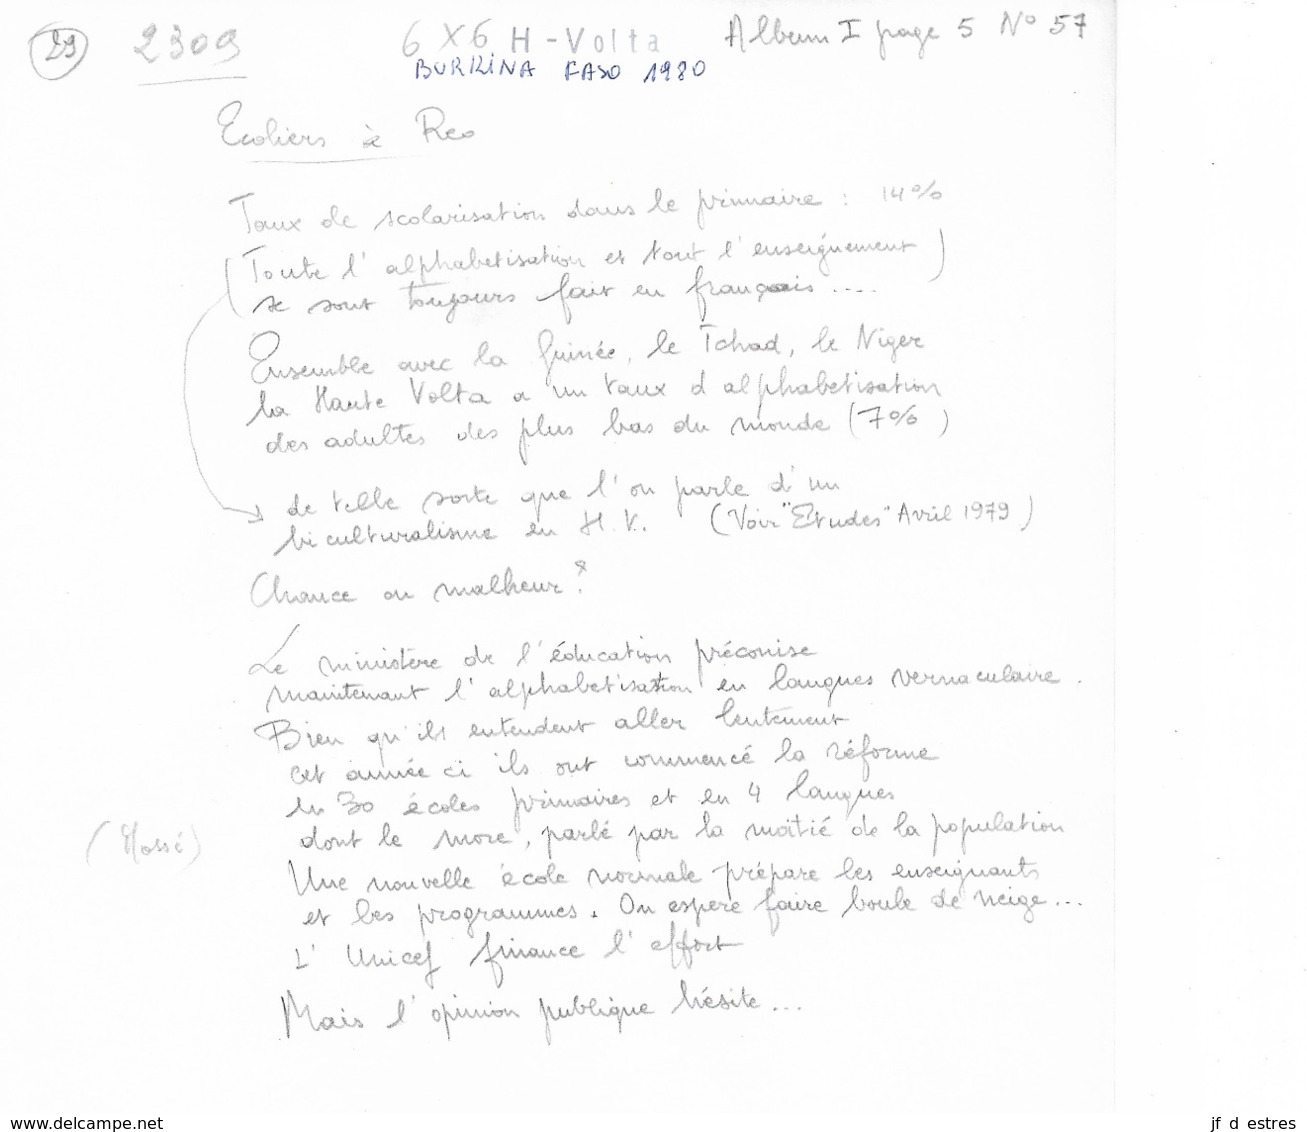 29 2309 6 X 6 H - Volta Album I page 5 N° 57
BURKINA FASO 1980
Ecoliers à Reo
Taux de scolarisation dans le primaire : 14%
(Toute l'alphabetisation et tout l'enseignement)
se sont toujours fait en français ....
Ensemble avec la Guinée, le Tchad, le Niger
la Haute Volta a un taux d alphabetisation
des adultes des plus bas du monde (7%)
de telle sorte que l'on parle d'un
biculturalisme en H.V. (Voir "Etudes" Avril 1979)
Chance ou malheur ?
Le ministère de l'éducation préconise
maintenant l'alphabetisation en langues vernaculaire.
Bien qu'ils entendent aller lentement
cet année ci ils ont commencé la réforme
en 30 écoles primaires et en 4 langues
dont le more, parlé par la moitié de la population
(Mossé)
Une nouvelle école normale prépare les enseignants
et les programmes. On espere faire boule de neige...
L'Unicef finance l'effort
Mais l'opinion publique hésite...
www.delcampe.net
jf d estres